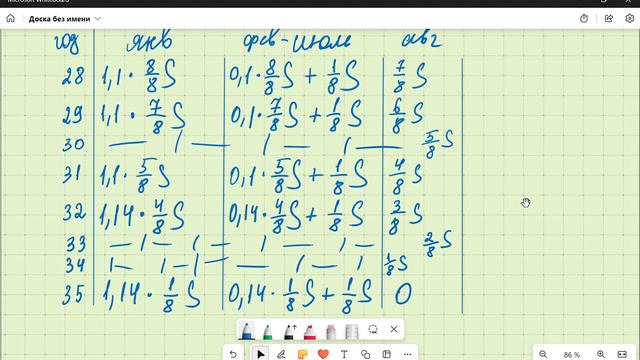 Microsoft Whiteboard
Доска без имени
год янв фев-июль авг
28 1,1 · 8/8 S 0,1 · 8/8 S + 1/8 S 7/8 S
29 1,1 · 7/8 S 0,1 · 7/8 S + 1/8 S 6/8 S
30 — 1 — 1 — 1 — 5/8 S
31 1,1 · 5/8 S 0,1 · 5/8 S + 1/8 S 4/8 S
32 1,14 · 4/8 S 0,14 · 4/8 S + 1/8 S 3/8 S
33 — 1 — 1 — 1 — 1 — 2/8 S
34 1 — 1 — 1 — — 1 — 1 1/8 S
35 1,14 · 1/8 S 0,14 · 1/8 S + 1/8 S 0
86 %